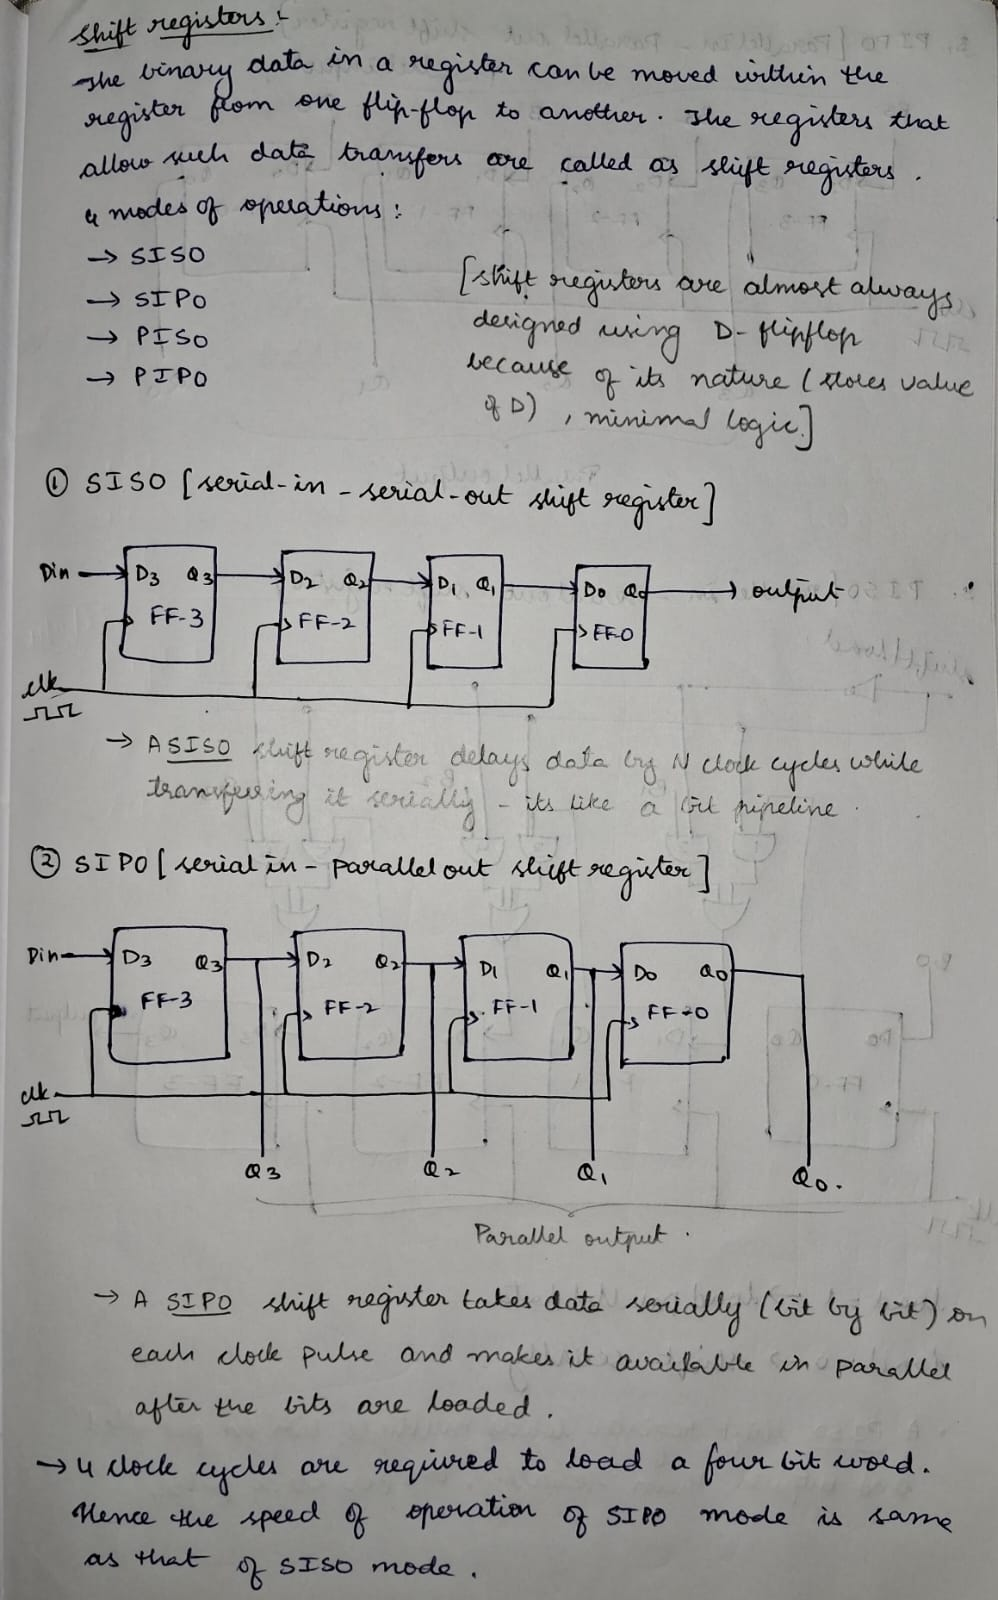 Shift registers :-
The binary data in a register can be moved within the
register from one flip-flop to another. The registers that
allow such data transfers are called as shift registers.
4 modes of operations :
→ SISO
→ SIPO
→ PISO
→ PIPO
[shift registers are almost always
designed using D-flipflop
because of its nature (stores value
of D), minimal logic.]
① SISO [serial-in-serial-out shift register]
Din D3 Q3 D2 Q2 D1 Q1 D0 Q0 → output
FF-3 FF-2 FF-1 FF-0
clk
→ A SISO shift register delays data by N clock cycles while
transferring it serially - its like a bit pipeline.
② SIPO [serial in - parallel out shift register]
Din D3 Q3 D2 Q2 D1 Q1 D0 Q0
FF-3 FF-2 FF-1 FF-0
clk
Q3 Q2 Q1 Q0.
Parallel output.
→ A SIPO shift register takes data serially (bit by bit) on
each clock pulse and makes it available in parallel
after the bits are loaded.
→ 4 clock cycles are required to load a four bit word.
Hence the speed of operation of SIPO mode is same
as that of SISO mode.